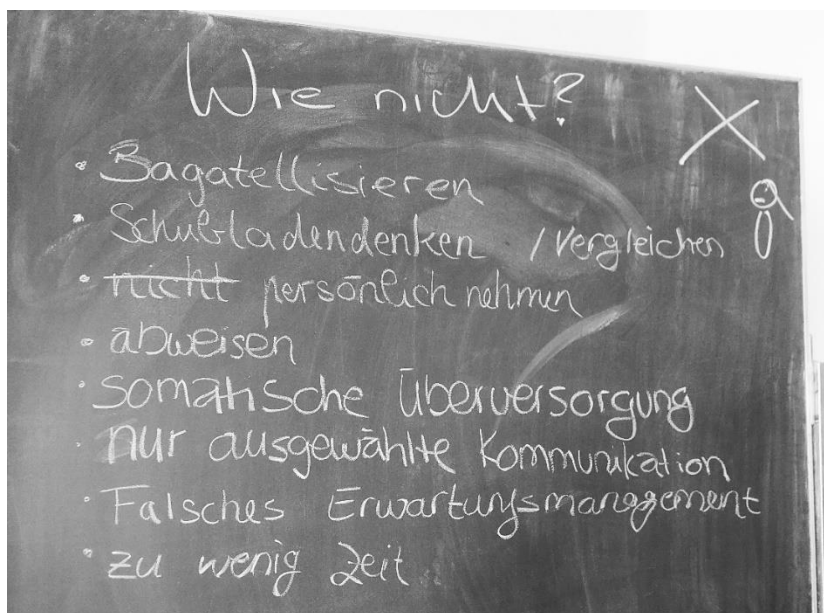 Wie nicht?
• Bagatellisieren
• Schubladendenken / Vergleichen
• ~~nicht~~ persönlich nehmen
• abweisen
• somatische Überversorgung
• nur ausgewählte Kommunikation
• Falsches Erwartungsmanagement
• zu wenig Zeit